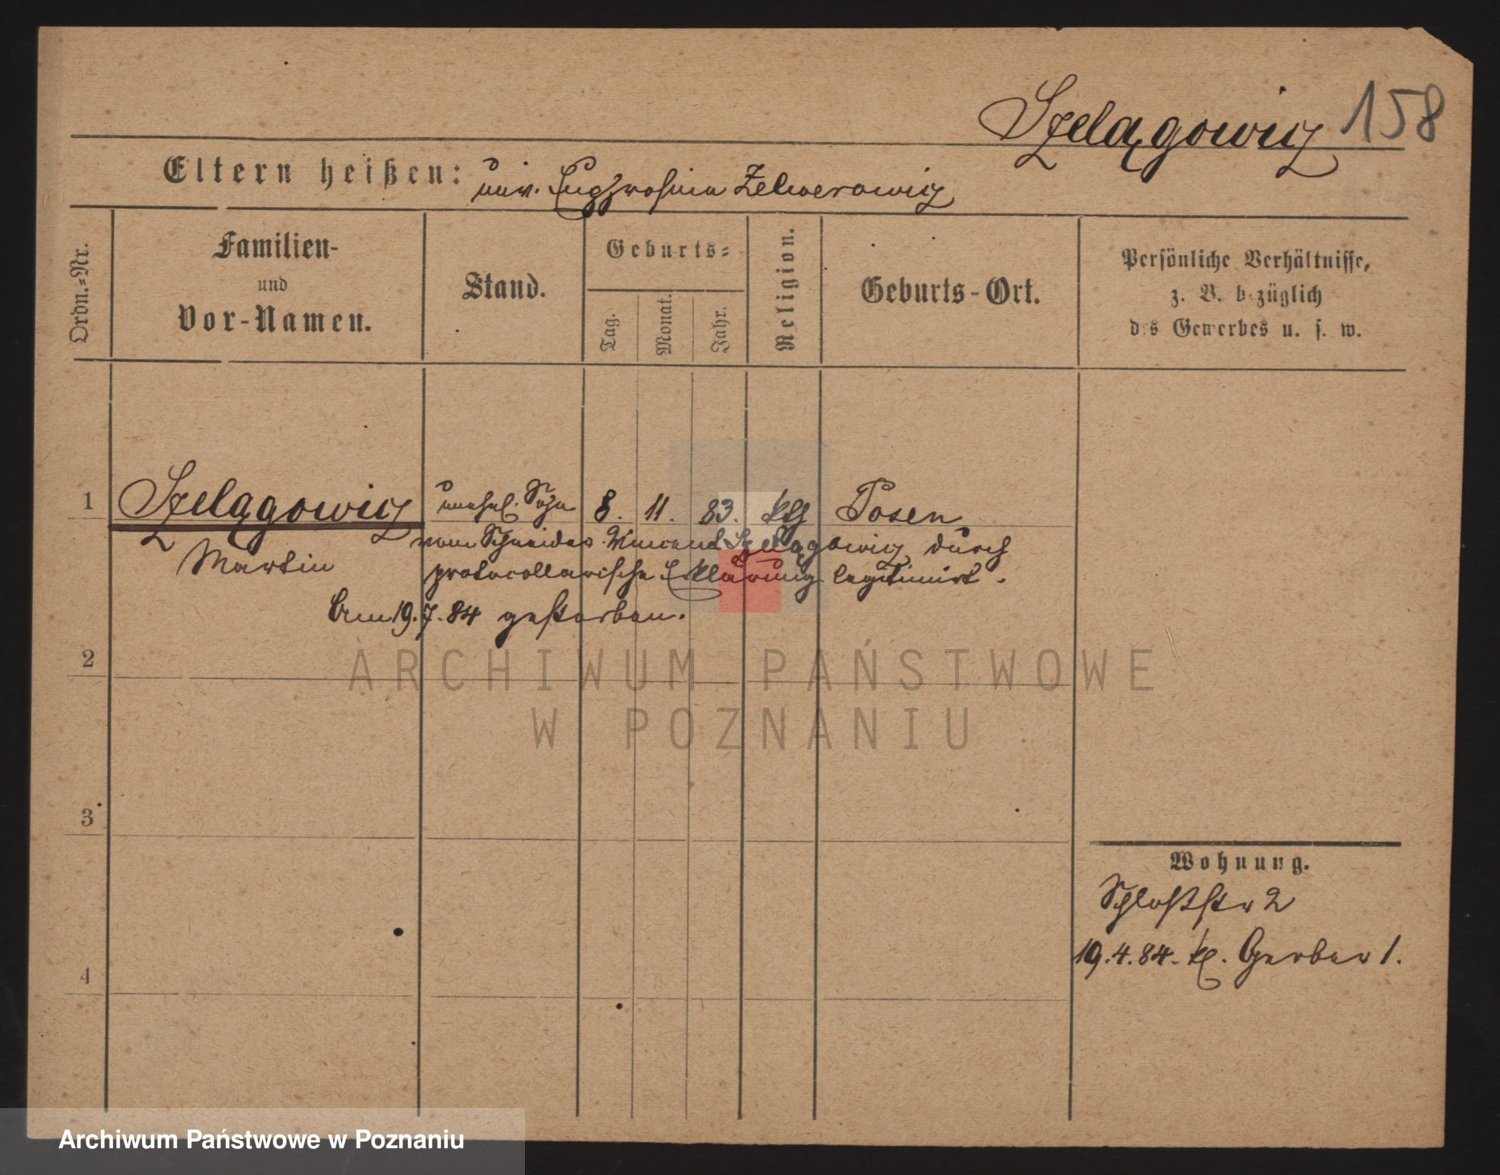 Szelągowicz 158
Eltern heißen: unv. Euphrosina Zelwerowicz
Ordn.-Nr.
Familien-
und
Vor-Namen.
Stand.
Geburts-
Tag.
Monat.
Jahr.
Religion.
Geburts-Ort.
Persönliche Verhältnisse,
z. B. bezüglich
des Gewerbes u. s. w.
1 Szelągowicz unehel. Sohn 8. 11. 83. kth Posen
Martin vom Schneider Vincent Szelągowicz durch
protocollarische Erklärung legitimirt.
Am 19.7.84 gestorben.
2
3
4
Wohnung.
Schloßstr 2
19.4.84. kl. Gerber 1.
ARCHIWUM PAŃSTWOWE
W POZNANIU
Archiwum Państwowe w Poznaniu